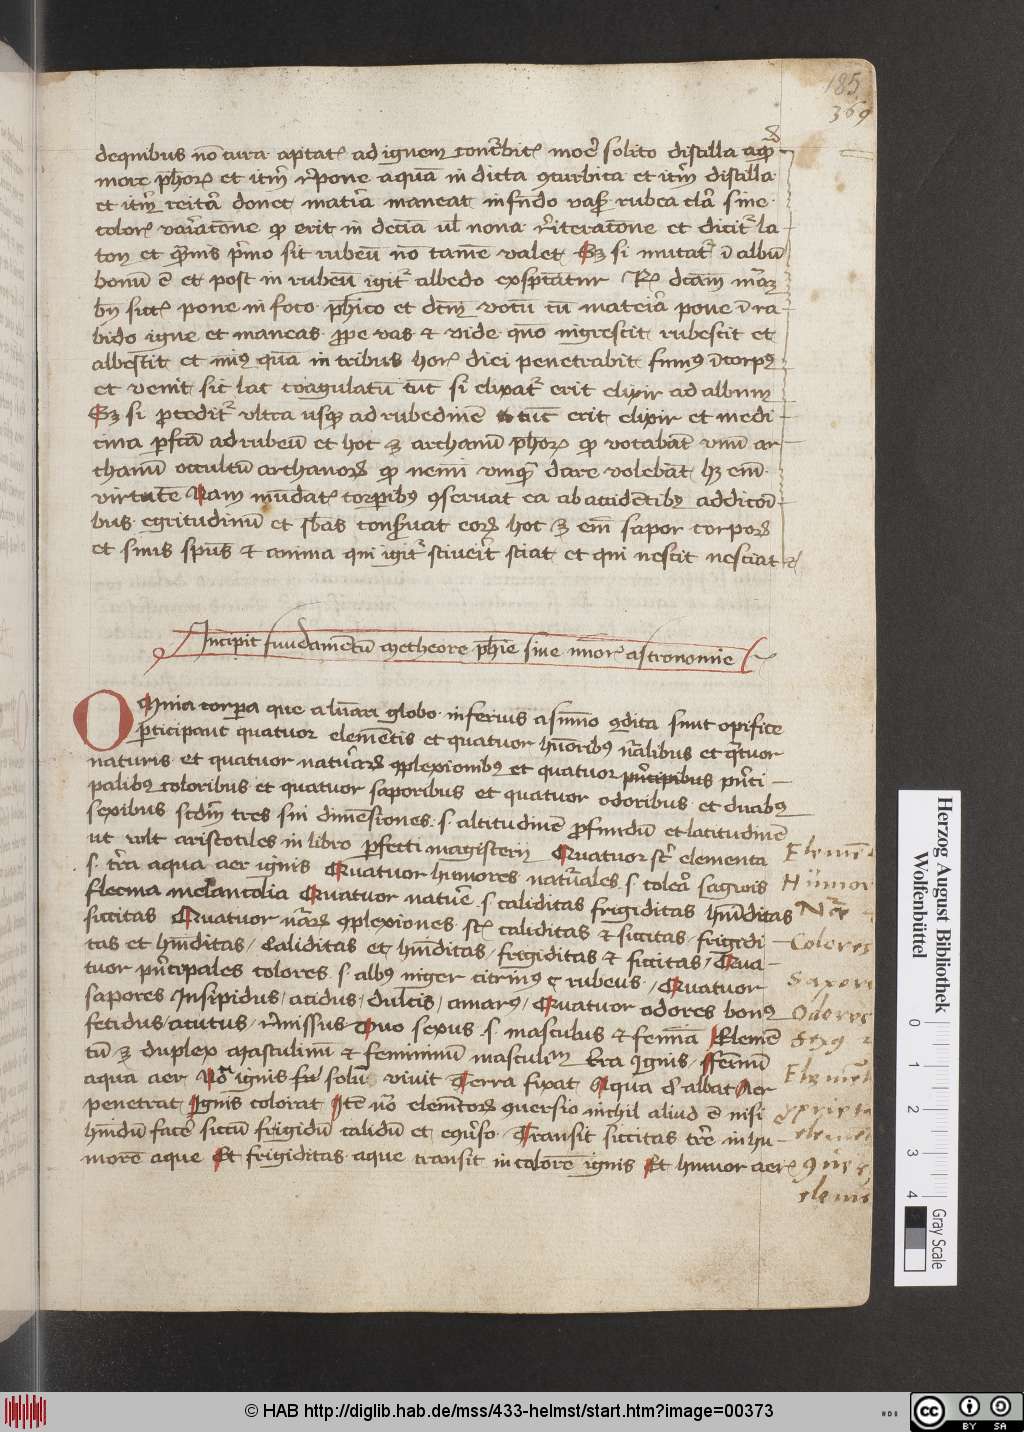 185
369
dequibus nō cura aptatʳ ad ignem
more phōrꝝ et itm̄ rͤpone aquā in dicta ꝯcurbita et itm̄ distilla
et itm̄ reitͣa donec matīa maneat in fundo vasꝭ rubea clāͣ sine
colorꝭ variatōne ꝙ erit in decīa ul' nona rͤiteratōne et dicitʳ la
ton et qͣmuis pͥmo sit rubeū nō tamē valet Sꝫ si mutatʳ ī albū
bonū ē et post in rubeū igitʳ albedo
pone in foco phīco et
bido igne et maneas ꝓpe vas ⁊ vide quō nigrescit rubescit et
albescit et quā in tribus horꝭ diei penetrabit fumꝰ īcorpꝰ
et venit sic lac coagulatū tūc si elixatʳ erit elixir ad album
Sꝫ si ꝓceditʳ vltra usqꝫ ad rubedinē tūc erit elixir et medi
cina ꝑfcā ad rubeū et hoc ꝫ archanū phōrꝝ ꝙ vocabāt vnū ar
chanū occultū archanorꝝ ꝙ nemī vnqͣ dare volebāt
virtutē Nam mūdatʳ corꝑibꝰ ꝯseruat ea ab accidētibꝰ addicōi
bus egritudinū et conseruat eorꝝ hoc ꝫ em̄ sapor corporꝝ
et sinis spūs ⁊ anima qui igitʳ sciuerit sciat et qui nescit nesciat ⁊c̄
Incipit fundamētū metheore phīe siue astronomie
Omnia corpora que a lunari globo inferius a sūmo ꝯdita sunt opifice
ꝑticipant quatuor elemētis et quatuor hūoribꝰ nͣalibus et qͣtuor
naturis et quatuor naturͣarꝝ ꝯplexionibꝰ et quatuor pͥncipibus pͥnci
palibꝰ coloribus et quatuor saporibus et quatuor odoribus et duabꝰ
sexibus scdm̄ tres sui dimēsiones .s. altitudinē ꝓfundū et latitudinē
ut vult aristotiles in libro ꝑfecti magisterij Quatuor st̄ elementa
.s. tr̄a aqua aer ignis Quatuor humores natͣales .s. colera sagwis
flecma melancolia Quatuor natuē .s. caliditas frigiditas hūiditas
siccitas Quatuor nͣarꝝ ꝯplexiones st̄ caliditas ⁊ siccitas frigidi
tas et hūiditas / Caliditas et hūiditas / frigiditas ⁊ siccitas / Qua
tuor pͥncipales colores .s. albꝰ niger citrinꝰ ⁊ rubeus / Quatuor
sapores Insipidus / acidus / dulcis / amarꝰ / Quatuor odores bonꝰ
fetidus / acutus / rͤmissus Duo sexus .s. masculus ⁊ femīa Elemē
tū ꝫ duplex Masculinū ⁊ femininū masculīm terra Ignis / ffemīnū
aqua aer Nōͣ ignis solū vivit Terra fixat Aqua albat Aer
penetrat Ignis colorat Itē uͦ elemētorꝝ ꝯuersio nichil aliud ē nisi
hūidū facere siccū frigidū calidū et eͦuerso Transit siccitas tr̄e in hu
morē aque Et frigiditas aque transit in colorē ignis Et humor aerꝭ
Elemē
Humor
Colores
Sapor
Odores
Sexꝰ
Elemē
elemē
Herzog August Bibliothek
Wolfenbüttel
0 1 2 3 4
Gray Scale
© HAB http://diglib.hab.de/mss/433-helmst/start.htm?image=00373
cc BY SA